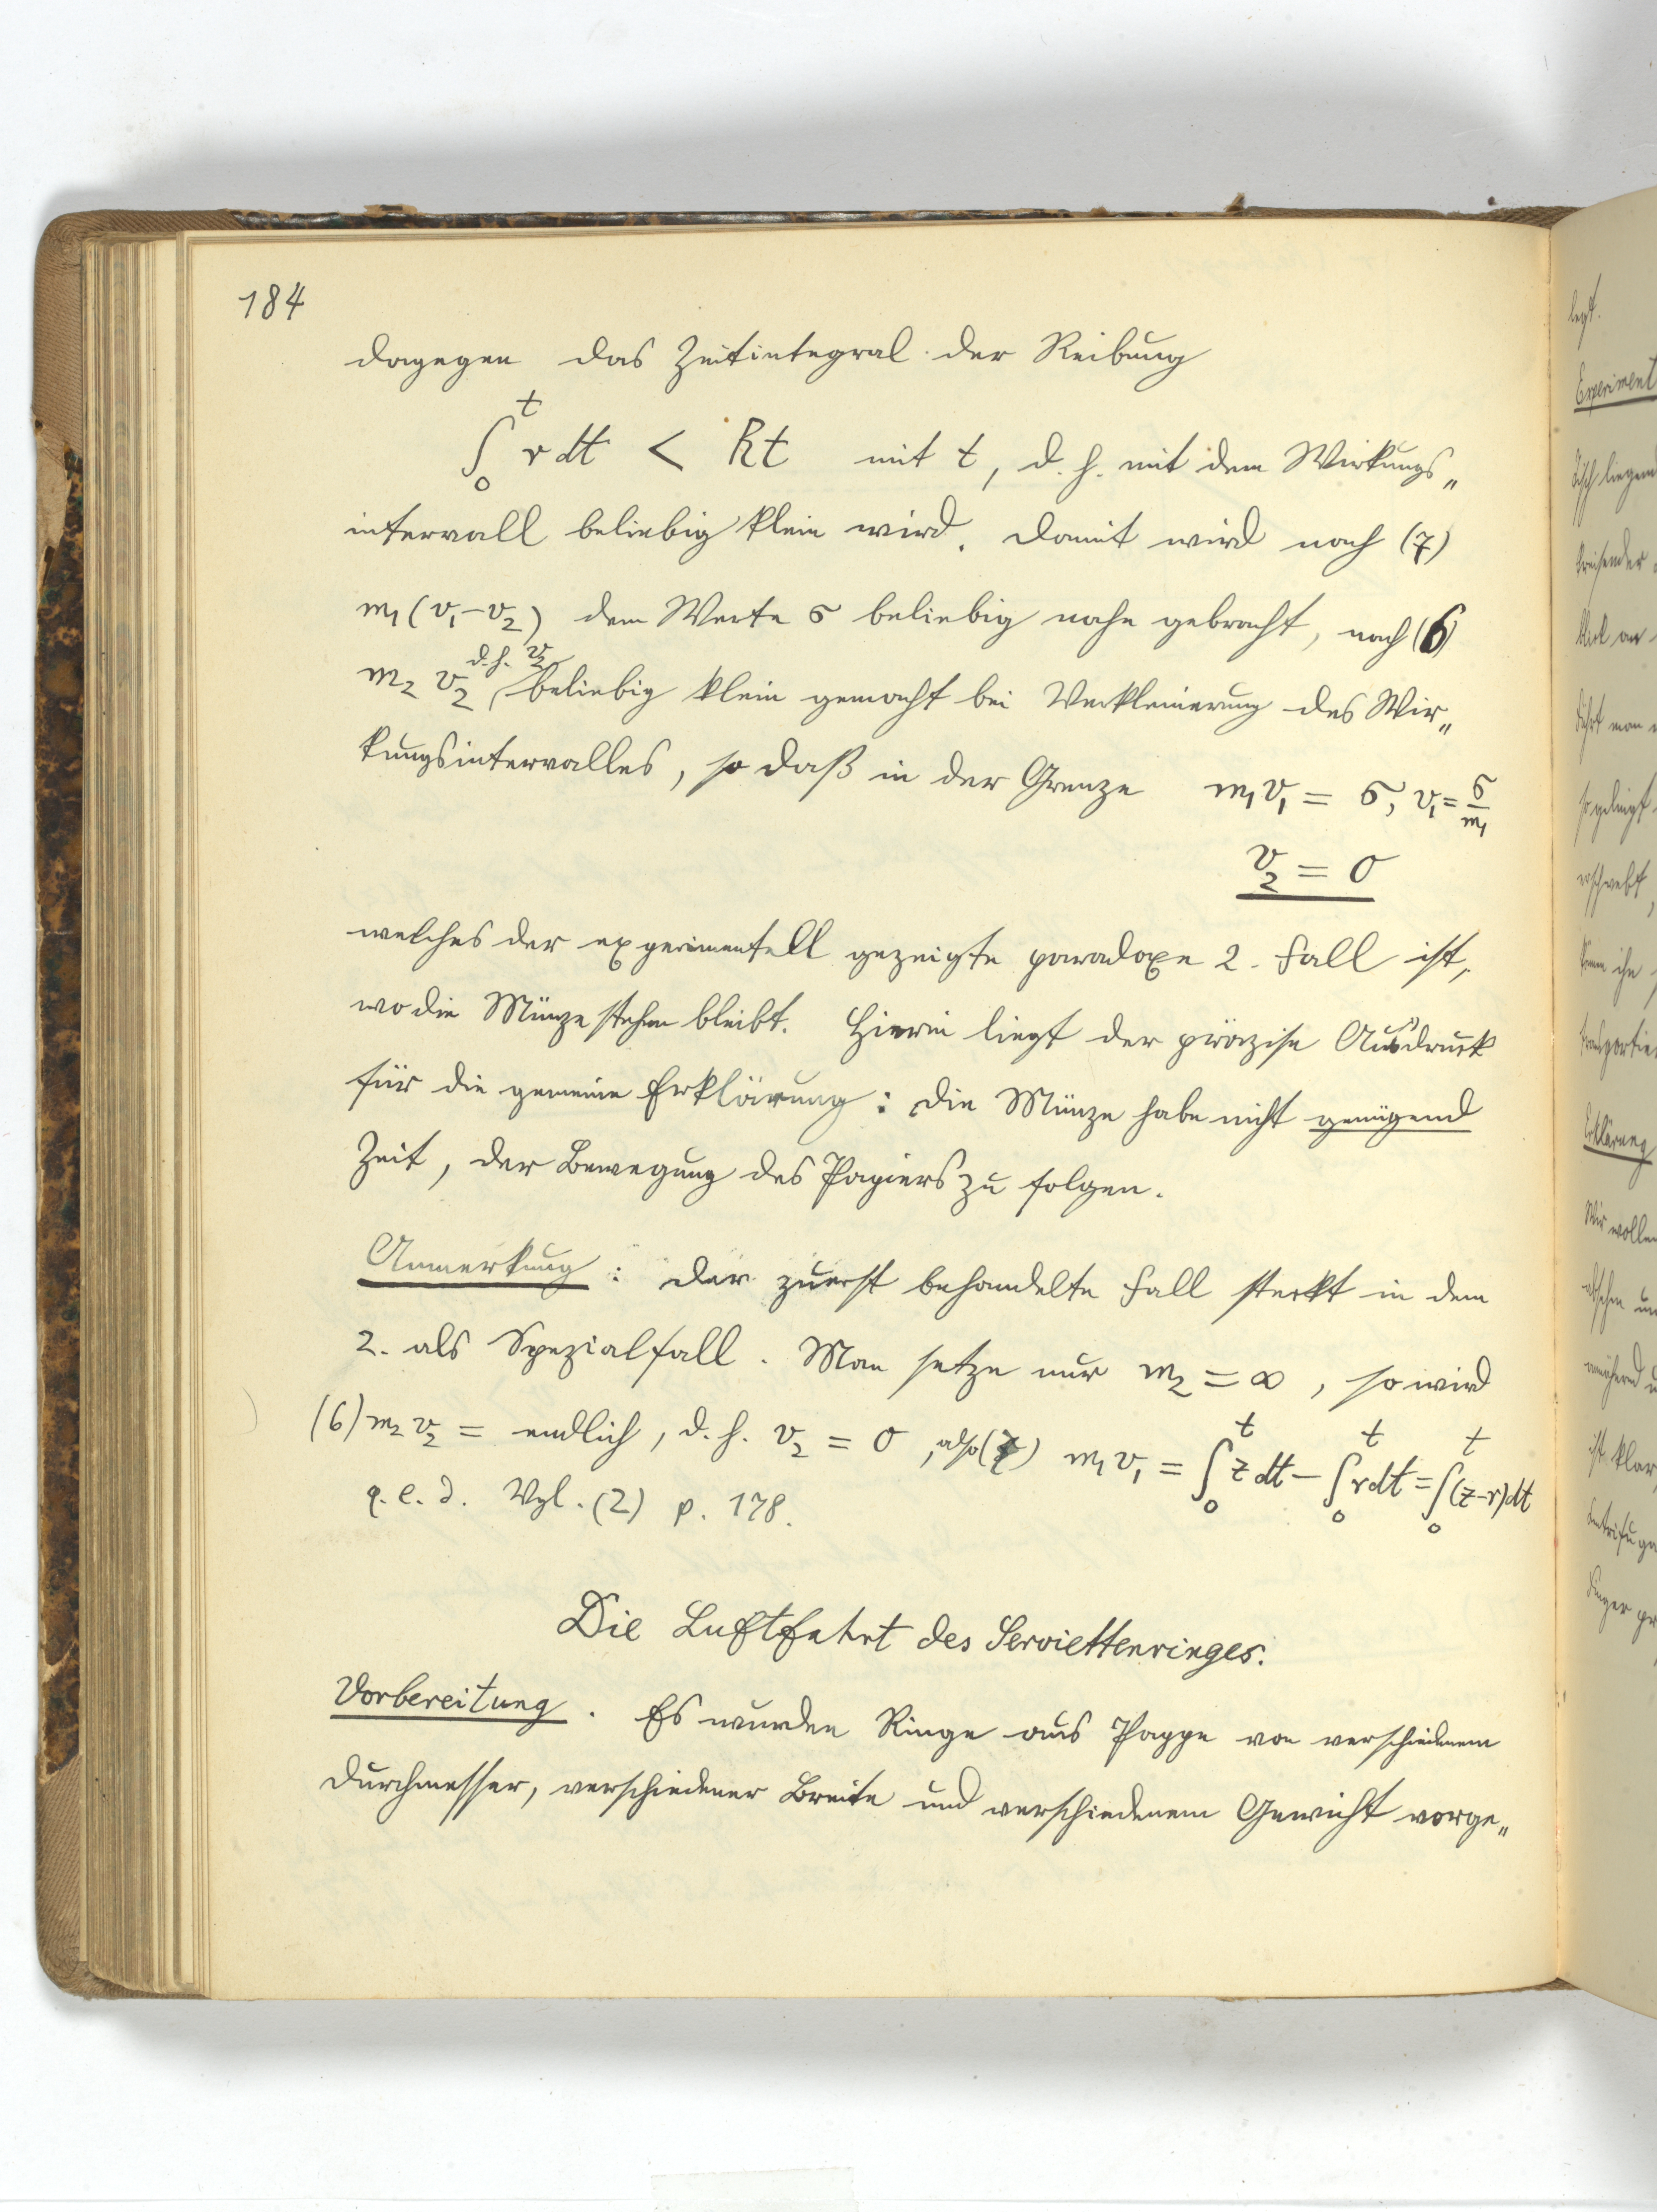 184
dagegen das Zeitintegral der Reibung
∫₀ᵗ r dt < Rt mit t, d. h. mit dem Wirkungs„
intervall beliebig klein wird. Damit wird nach (7)
m₁(v₁−v₂) dem Werte σ beliebig nahe gebracht, nach (6)
m₂ v₂, d. h. v₂ beliebig klein gemacht bei Verkleinerung des Wir„
kungsintervalles, so daß in der Grenze m₁v₁ = σ, v₁ = σ/m₁
v₂ = 0
welches der experimentell gezeigte paradoxe 2. Fall ist,
wo die Münze stehen bleibt. Hierin liegt der präzise Ausdruck
für die gemeine Erklärung: Die Münze habe nicht genügend
Zeit, der Bewegung des Papiers zu folgen.
Anmerkung: Der zuerst behandelte Fall steckt in dem
2. als Spezialfall. Man setze nur m₂ = ∞, so wird
(6) m₂ v₂ = endlich, d. h. v₂ = 0, also (7) m₁v₁ = ∫₀ᵗ z dt − ∫₀ᵗ r dt = ∫₀ᵗ (z−r) dt
q. e. d. Vgl. (2) p. 178.
Die Luftfahrt des Serviettenringes.
Vorbereitung. Es wurden Ringe aus Pappe von verschiedenem
Durchmesser, verschiedener Breite und verschiedenem Gewicht vorge„
legt.
Experiment
wir wollen
Erklärung